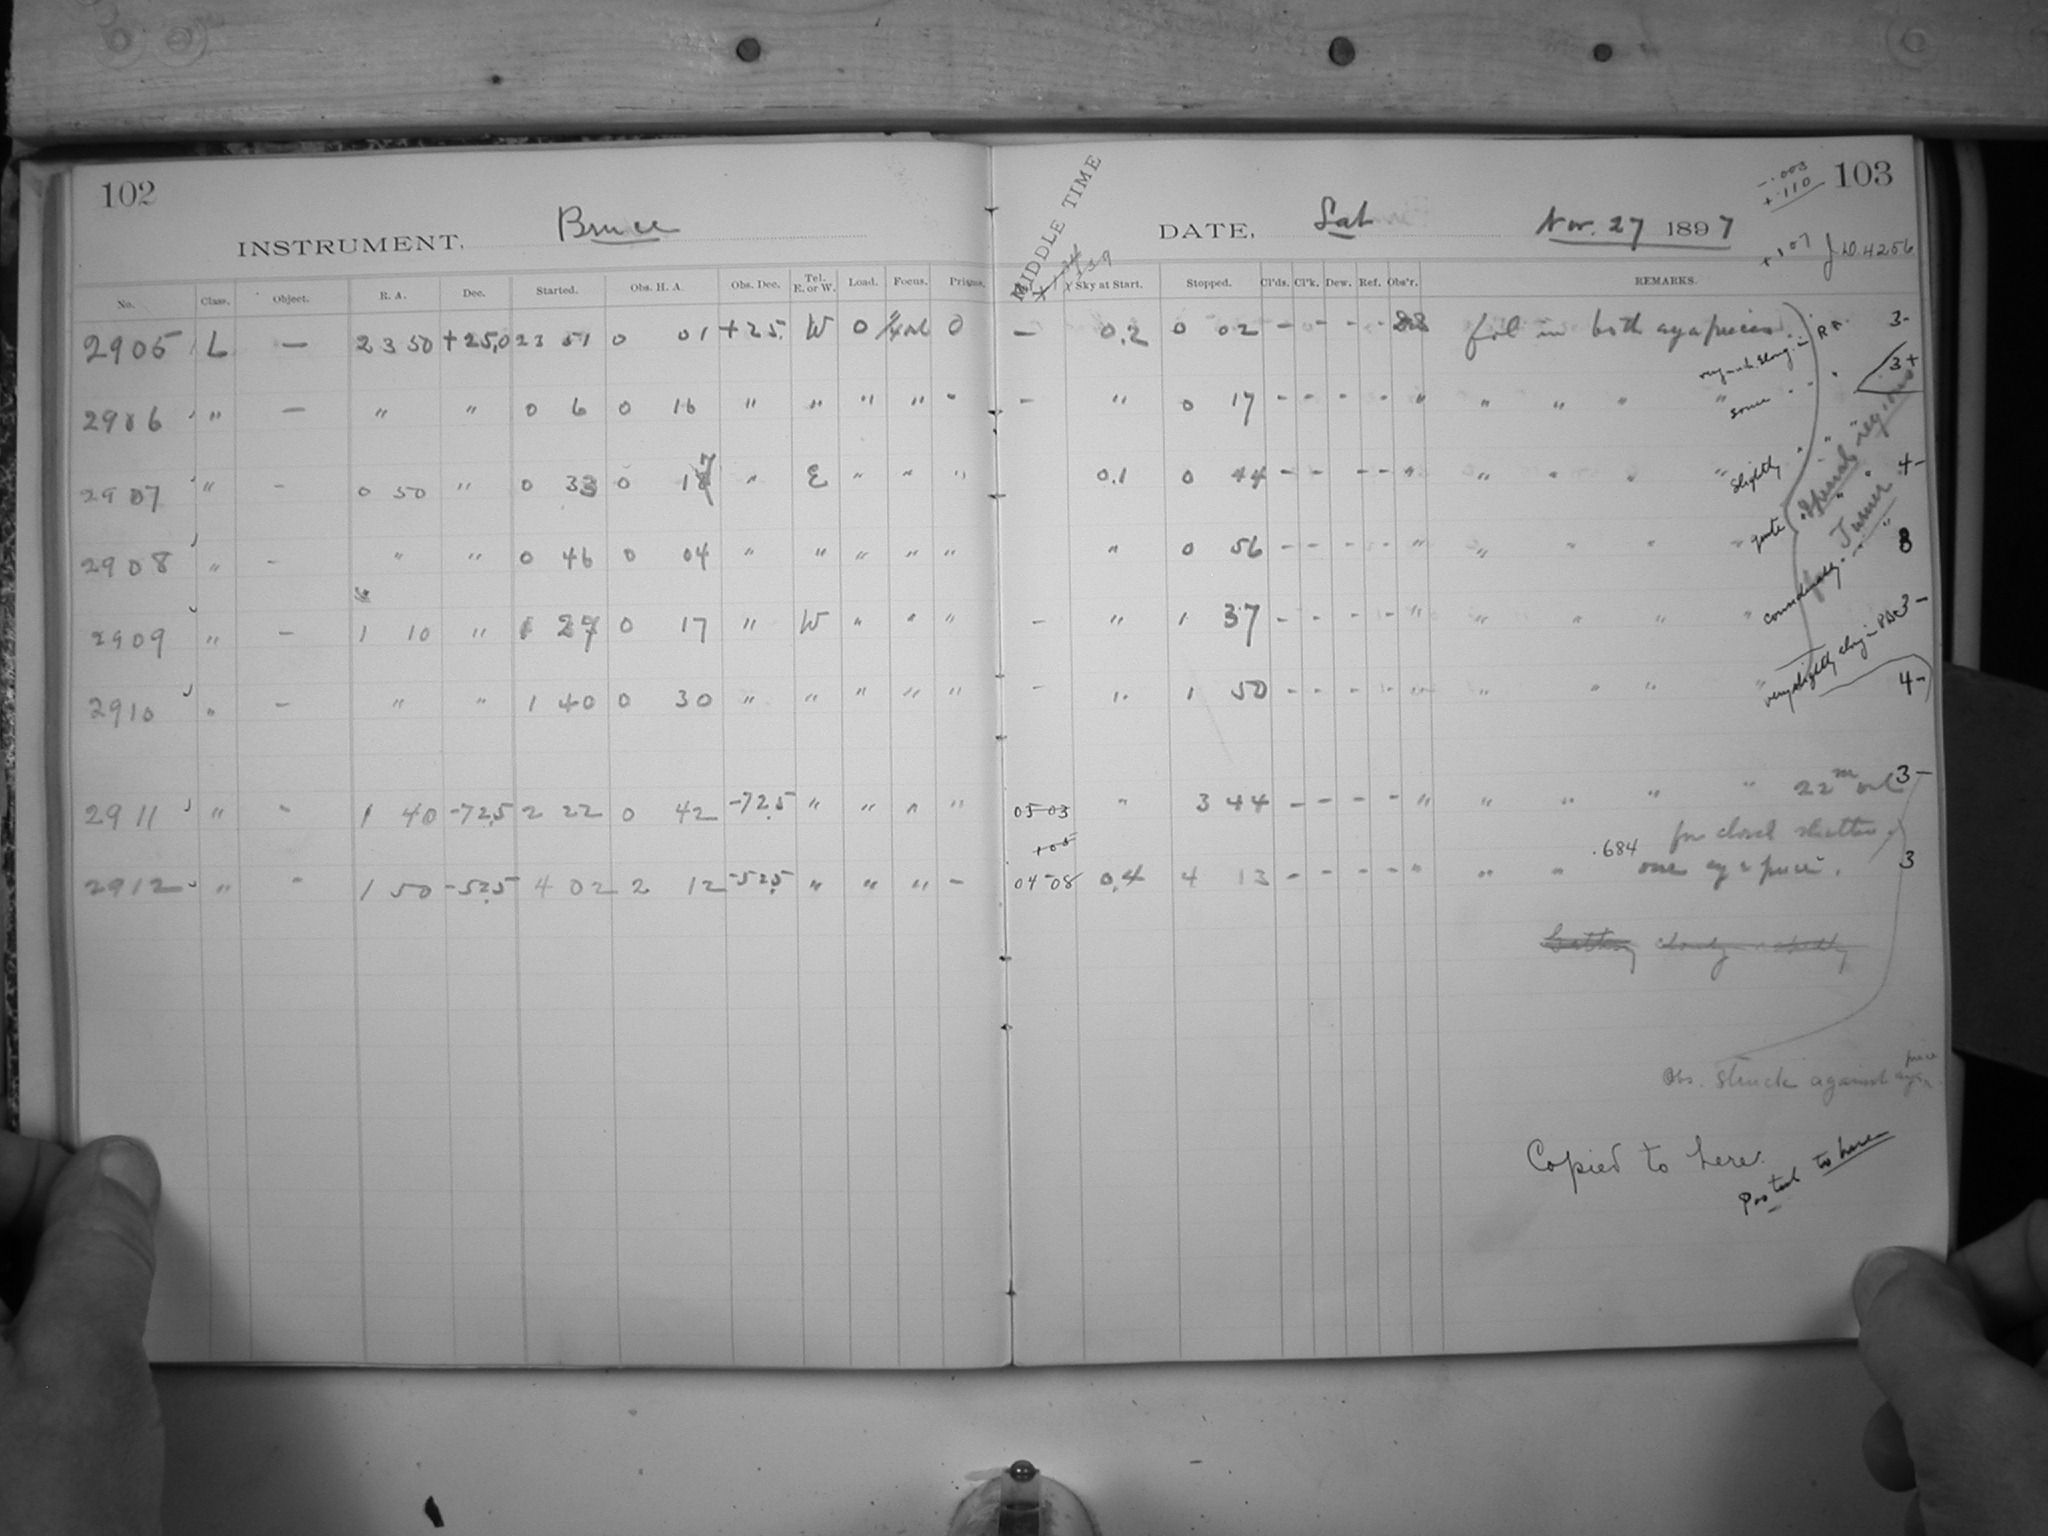 102
INSTRUMENT, Bruce
No. Class. Object. R. A. Dec. Started. Obs. H. A. Obs. Dec. Tel. R. or W. Load. Focus. Prisms.
2905 L — 23 50 +25,0 23 51 0 01 +25. W 0 0
2906 " — " " 0 6 0 16 " " " " "
2907 " - 0 50 " 0 33 0 17 " E " " "
2908 " - " " 0 46 0 04 " " " " "
2909 " - 1 10 " 1 27 0 17 " W " " "
2910 " - " " 1 40 0 30 " " " " "
2911 " " 1 40 -72.5 2 22 0 42 -72.5 " " " "
2912 " " 1 50 -52.5 4 02 2 12 -52.5 " " " -
103
-.003
+.110
+107
J.D. 4256
MIDDLE TIME
DATE, Sat Nov. 27 1897
Sky at Start. Stopped. Cl'ds. Cl'k. Dew. Ref. Obs'r. REMARKS.
— 0.2 0 02 - - - - foil in both eyepieces R A. 3-
- " 0 17 - - - - " " " " " some " " 3+
0.1 0 44 - - - - " " " " " slightly " " " 4-
" 0 56 - - - - " " " " " quite " " " 3
- " 1 37 - - - - " " " " " considerably 3-
- " 1 50 - - - - " " " " " very slightly elong. in Dec 4-
Special regions
for Turner
05 03 " 3 44 - - - - " " " " " 22m 3-
+05
for closed shutter.
04 08 0.4 4 13 - - - - " " " .684 one eyepiece. 3
Obs. struck against eye piece
Copied to here.
Posted to here